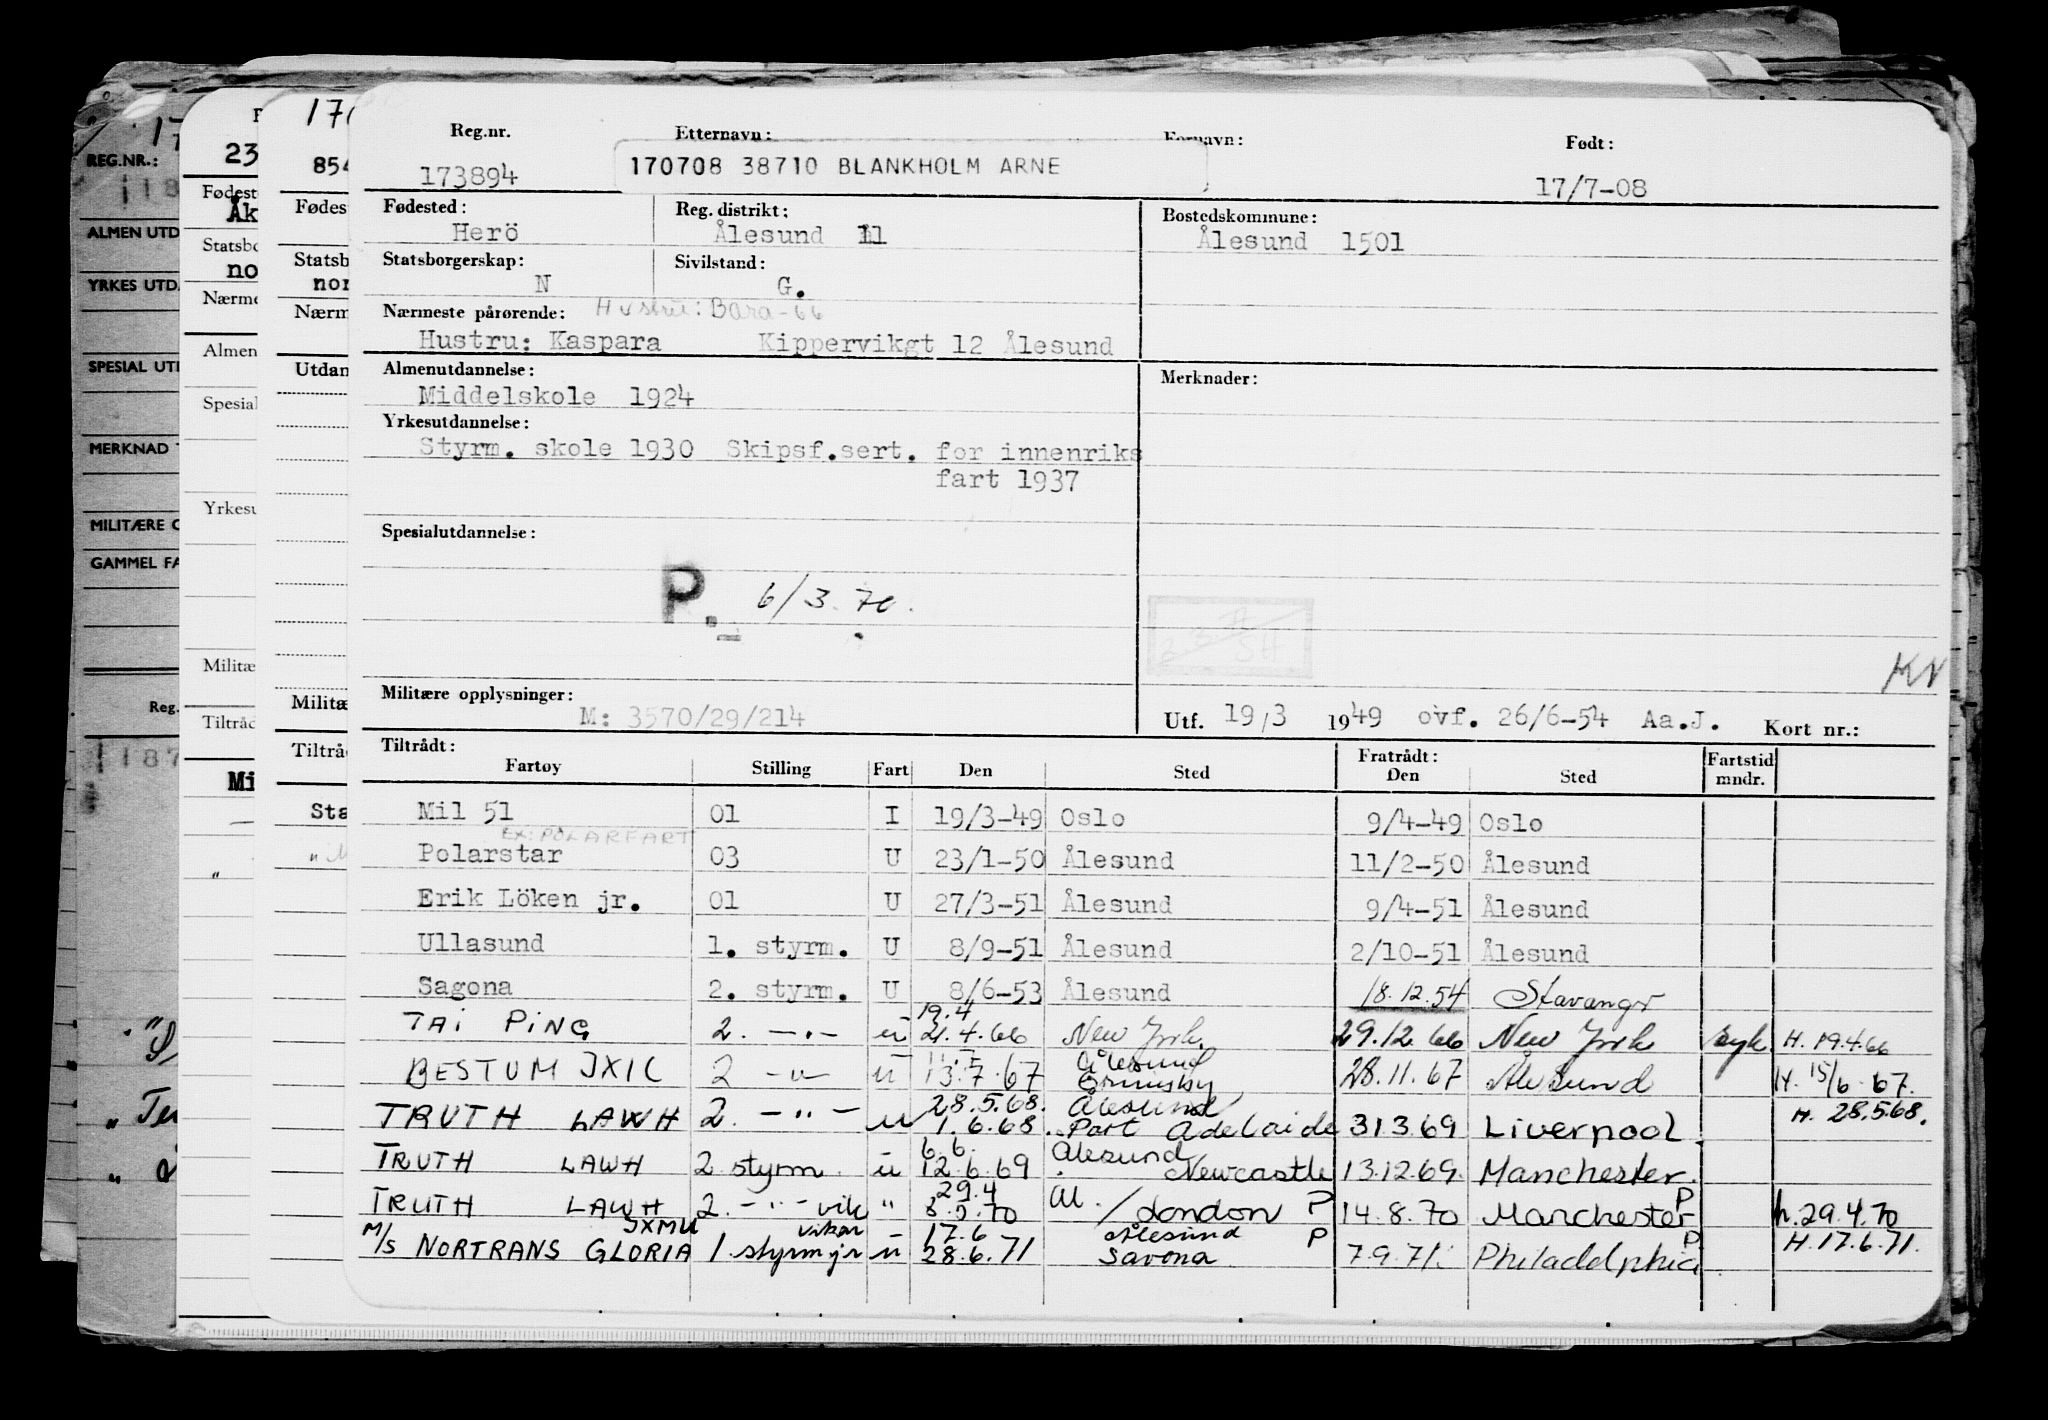 Reg.nr. Etternavn: Født:
173894 170708 38710 BLANKHOLM ARNE 17/7-08
Fødested: Reg. distrikt: Bostedskommune:
Herö Ålesund 11 Ålesund 1501
Statsborgerskap: Sivilstand:
N G.
Nærmeste pårørende: Hustru: Bara-66
Hustru: Kaspara Kippervikgt 12 Ålesund
Almenutdannelse: Merknader:
Middelskole 1924
Yrkesutdannelse:
Styrm. skole 1930 Skipsf.sert. for innenriks
fart 1937
Spesialutdannelse:
P. 6/3.70.
KN
Militære opplysninger:
M: 3570/29/214 Utf. 19/3 1949 ovf. 26/6-54 Aa.J. Kort nr.:
Tiltrådt: Fratrådt: Fartstid
Fartøy Stilling Fart Den Sted Den Sted mndr.
Mil 51 01 I 19/3-49 Oslo 9/4-49 Oslo
EX: POLARFART
Polarstar 03 U 23/1-50 Ålesund 11/2-50 Ålesund
Erik Löken jr. 01 U 27/3-51 Ålesund 9/4-51 Ålesund
Ullasund 1. styrm. U 8/9-51 Ålesund 2/10-51 Ålesund
Sagona 2. styrm. U 8/6-53 Ålesund 18.12.54 Stavanger
19.4
TAI PING 2. -"- u 21.4.66 New York. 29.12.66 New York syk. H. 19.4.66
Ålesund
BESTUM JXIC 2 -"- u 13.7.67 Grimsby 28.11.67 Ålesund H. 15/6.67.
28.5.68. Ålesund
TRUTH LAWH 2. -"- u 1.6.68. Port Adelaide 31369 Liverpool. H. 28.5.68.
6.6. Ålesund
TRUTH LAWH 2 styrm. u 12.6.69 Newcastle 13.12.69. Manchester.
29.4
TRUTH LAWH 2. -"- vik " 3.5.70 Ål./London P 14.8.70 Manchester P h.29.4.70
JXMU vikar 17.6 Ålesund
M/S NORTRANS GLORIA 1. styrm jr u 28.6.71 Savona P 7.9.71. Philadelphia P. H.17.6.71.
REG.NR.:
ALMEN UTD
YRKES UTD.
SPESIAL UTI
MERKNAD
MILITÆRE O
GAMMEL FA
Reg.
23
Fødest
Åk
Statsbo
no
Nærme
Almen
Spesial
Yrkesu
Militæ
Tiltråd
Mi
854
Fødes
Statsb
nor
Nærm
Utdan
Militæ
Tiltrå
Sta